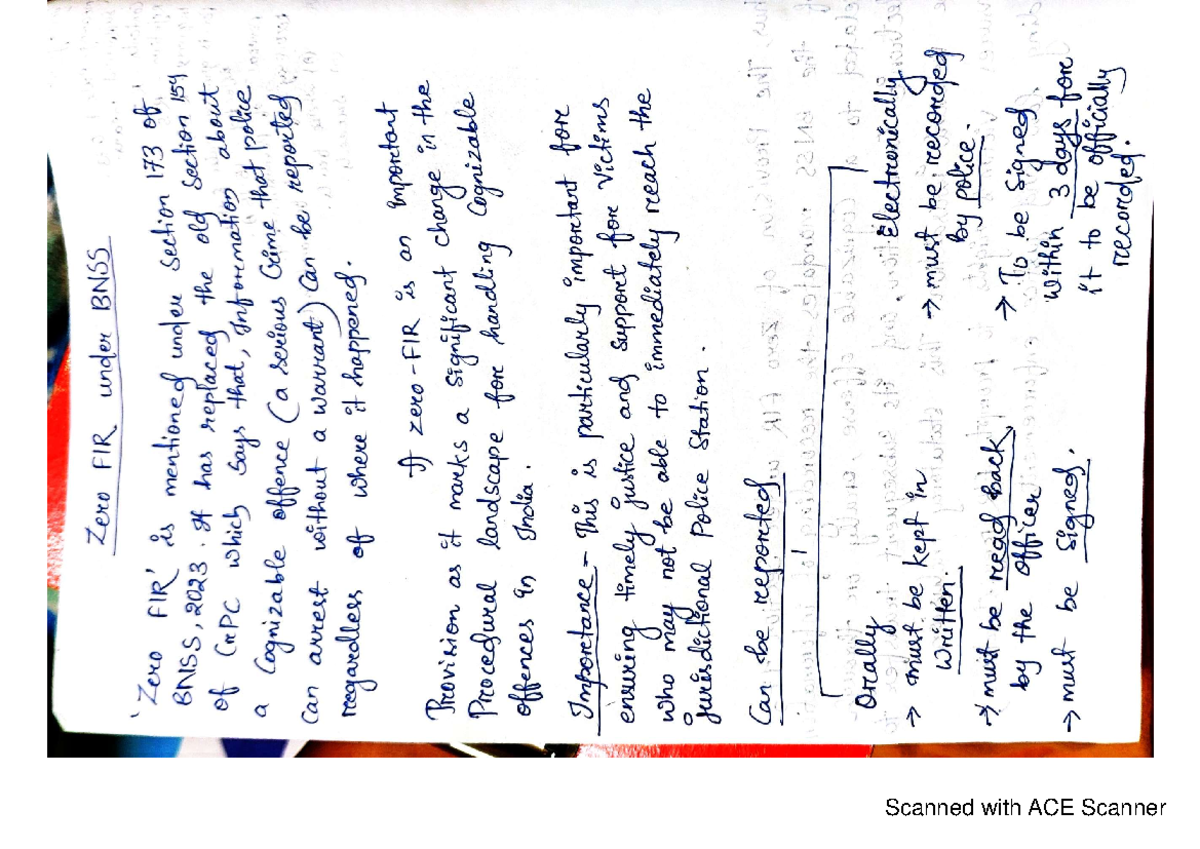 Zero FIR under BNSS
'Zero FIR' is mentioned under Section 173 of
BNSS, 2023. It has replaced the old Section 154
of CrPC which says that, Information about
a Cognizable offence (a serious crime that police
can arrest without a warrant) can be reported
regardless of where it happened.
A zero-FIR is an important
Provision as it marks a significant change in the
Procedural landscape for handling Cognizable
offences in India.
Importance - This is particularly important for
ensuring timely justice and support for victims
who may not be able to immediately reach the
jurisdictional Police Station.
Can be reported
Orally
→ must be kept in
written.
→ must be read back
by the officer
→ must be signed.
Electronically
→ must be recorded
by police.
→ To be signed
within 3 days for
it to be officially
recorded.
Scanned with ACE Scanner